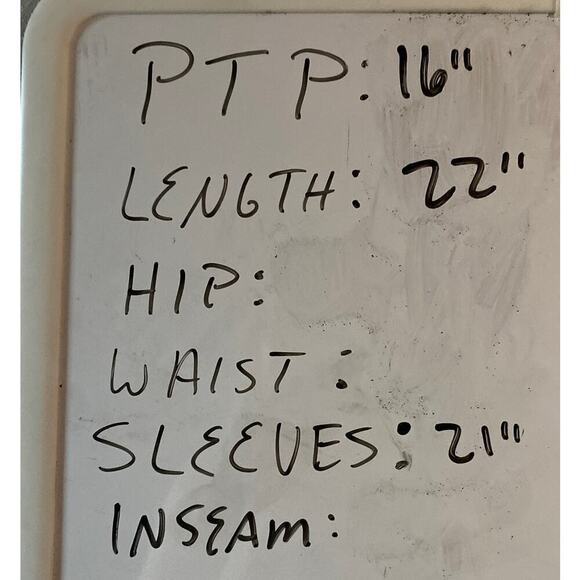 PTP: 16"
LENGTH: 22"
HIP:
WAIST:
SLEEVES: 21"
INSEAM: